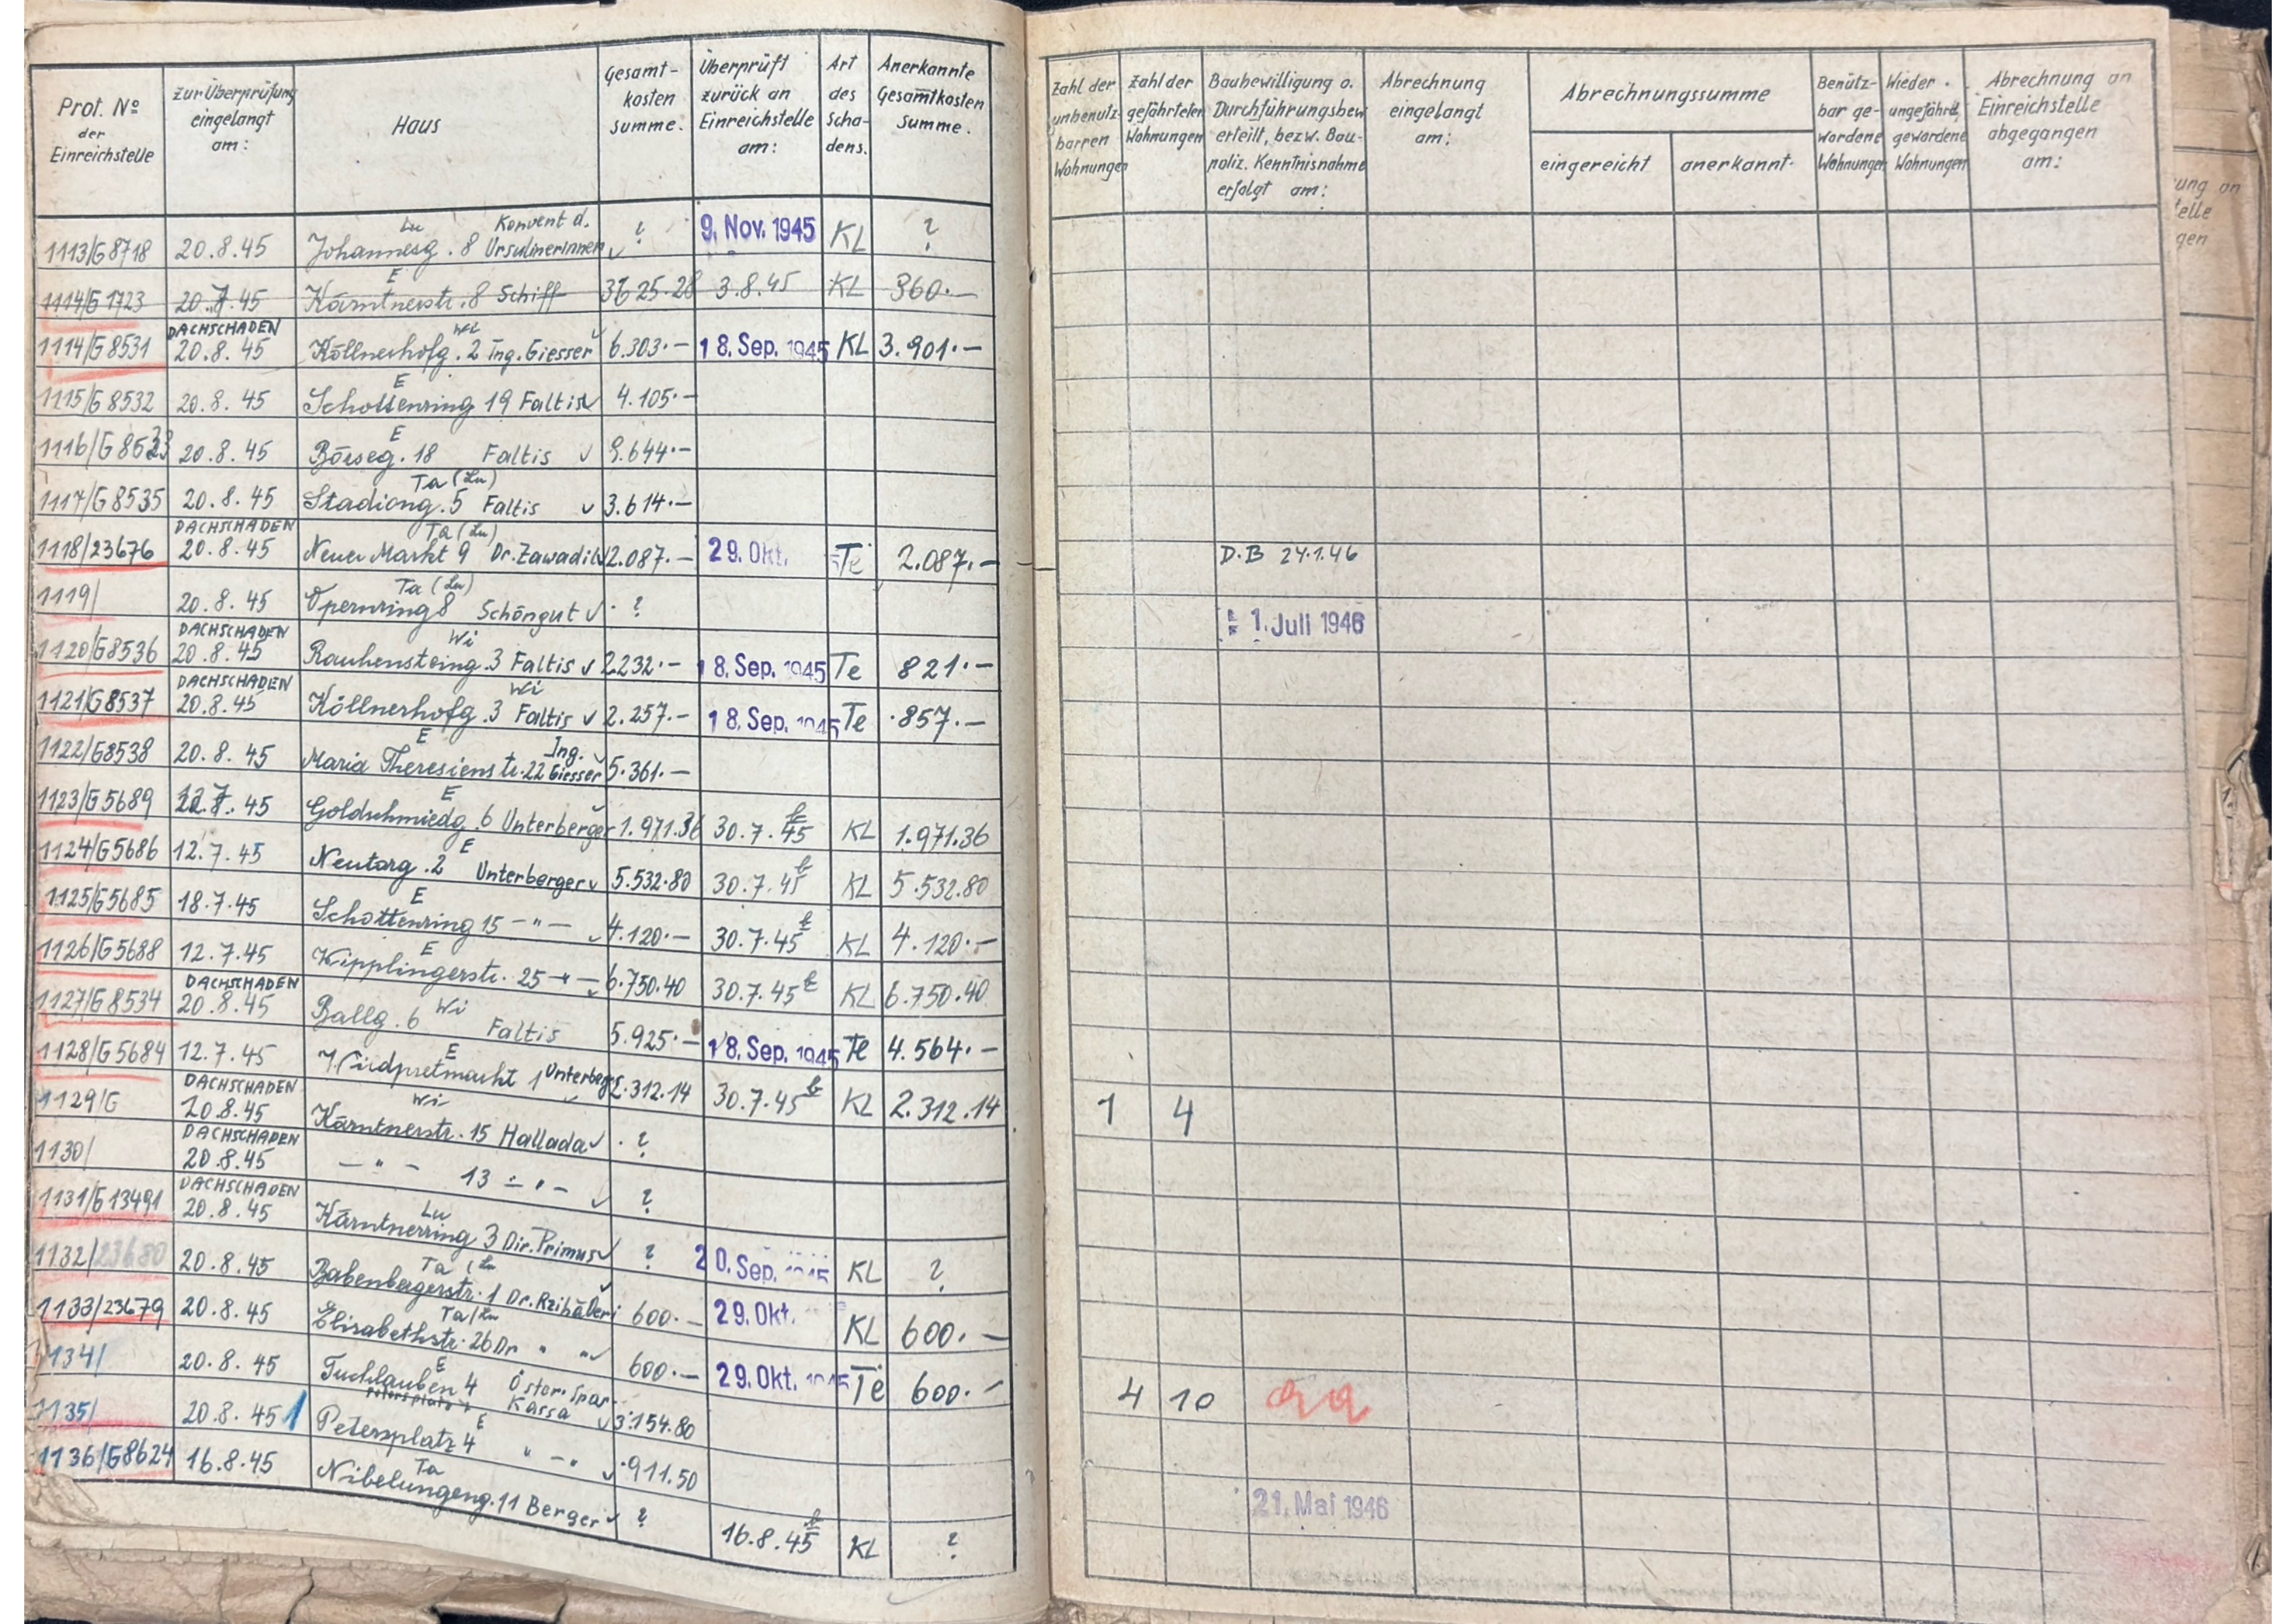 Prot. No der Einreichstelle | zur Überprüfung eingelangt am: | Haus | Gesamt-kosten summe. | Überprüft zurück an Einreichstelle am: | Art des Scha-dens. | Anerkannte Gesamtkosten Summe. | Zahl der unbenutz-barren Wohnungen | Zahl der gefährteten Wohnungen | Baubewilligung o. Durchführungsbew. erteilt, bezw. Bau-poliz. Kenntnisnahme erfolgt am: | Abrechnung eingelangt am: | Abrechnungssumme eingereicht | anerkannt. | Benütz-bar ge-wordene Wohnungen | Wieder. ungefährd. gewordene Wohnungen | Abrechnung an Einreichstelle abgegangen am:
1113/G8718 | 20.8.45 | Lu Johannesg. 8 Konvent d. Ursulinerinnen ✓ | ? | 9. Nov. 1945 | KL | ?
1114/G1723 | 20.7.45 | E Kärntnerstr. 8 Schiff | 3625.28 | 3.8.45 | KL | 360.—
1114/G8531 | DACHSCHADEN 20.8.45 | Wi Köllnerhofg. 2 Ing. Giesser ✓ | 6.303.— | 18. Sep. 1945 | KL | 3.901.—
1115/G8532 | 20.8.45 | E Schottenring 19 Faltis ✓ | 4.105.—
1116/G8533 | 20.8.45 | E Börseg. 18 Faltis ✓ | 9.644.—
1117/G8535 | 20.8.45 | Ta (Lu) Stadiong. 5 Faltis ✓ | 3.614.—
1118/23676 | DACHSCHADEN 20.8.45 | Ta (Lu) Neuer Markt 9 Dr. Zawadil ✓ | 2.087.— | 29. Okt. | Te | 2.087.— | D.B 24.1.46
1119/ | 20.8.45 | Ta (Lu) Opernring 8 Schöngut ✓ | ? | 1. Juli 1946
1120/G8536 | DACHSCHADEN 20.8.45 | Wi Rauhensteing. 3 Faltis ✓ | 2232.— | 18. Sep. 1945 | Te | 821.—
1121/G8537 | DACHSCHADEN 20.8.45 | Wi Köllnerhofg. 3 Faltis ✓ | 2.257.— | 18. Sep. 1945 | Te | 857.—
1122/G8538 | 20.8.45 | E Maria Theresienstr. 22 Ing. Giesser ✓ | 5.361.—
1123/G5689 | 12.7.45 | E Goldschmiedg. 6 Unterberger ✓ | 1.971.36 | 30.7.45 | KL | 1.971.36
1124/G5686 | 12.7.45 | E Neutorg. 2 Unterberger ✓ | 5.532.80 | 30.7.45 | KL | 5.532.80
1125/G5685 | 18.7.45 | E Schottenring 15 — " — ✓ | 4.120.— | 30.7.45 | KL | 4.120.—
1126/G5688 | 12.7.45 | E Wipplingerstr. 25 — " — ✓ | 6.750.40 | 30.7.45 | KL | 6.750.40
1127/G8534 | DACHSCHADEN 20.8.45 | Wi Ballg. 6 Faltis | 5.925.— | 18. Sep. 1945 | Te | 4.564.—
1128/G5684 | 12.7.45 | E Wildpretmarkt 1 Unterberger ✓ | 2.312.14 | 30.7.45 | KL | 2.312.14
1129/G | DACHSCHADEN 20.8.45 | Wi Kärntnerstr. 15 Hallada ✓ | ? | 1 | 4
1130/ | DACHSCHADEN 20.8.45 | — " — 13 — " — ✓ | ?
1131/G13491 | DACHSCHADEN 20.8.45 | Lu Kärntnerring 3 Dir. Primus ✓ | ? | 20. Sep. 1945 | KL | ?
1132/23680 | 20.8.45 | Ta (Lu Babenbergerstr. 1 Dr. | 600.— | 29. Okt. | KL | 600.—
1133/23679 | 20.8.45 | Ta/Lu Elisabethstr. 26 Dr " " ✓ | 600.— | 29. Okt. 1945 | Te | 600.—
1134/ | 20.8.45 | E Tuchlauben 4 Petersplatz 4 Öster. Spar. Kassa ✓ | 3.154.80 | 4 | 10
1135/ | 20.8.45 | E Petersplatz 4 " — " ✓ | 911.50
1136/G8624 | 16.8.45 | Ta Nibelungeng. 11 Berger ✓ | ? | 16.8.45 | KL | ? | 21. Mai 1946